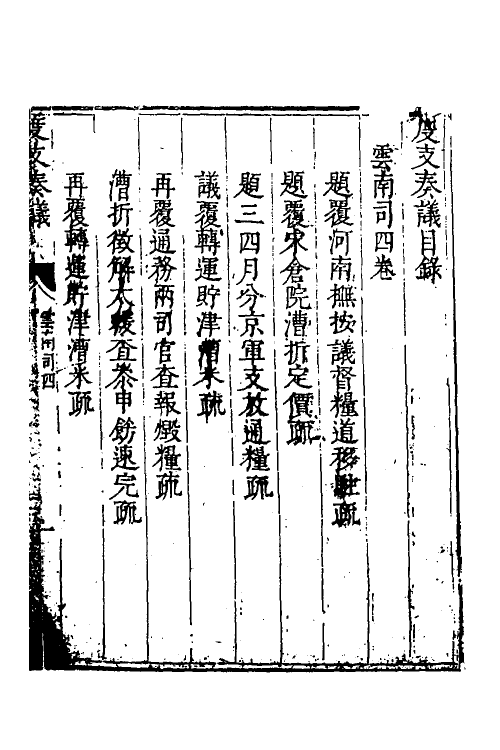 度支奏議目錄
雲南司四卷
題覆河南撫按議督糧道移駐疏
題覆宋倉院漕折定價疏
題三四月分京軍支放通糧疏
議覆轉運貯津漕米疏
再覆通務兩司官查報燬糧疏
漕折徵解太緩查叅申飭速完疏
再覆轉運貯津漕米疏
度支奏議
雲南司四